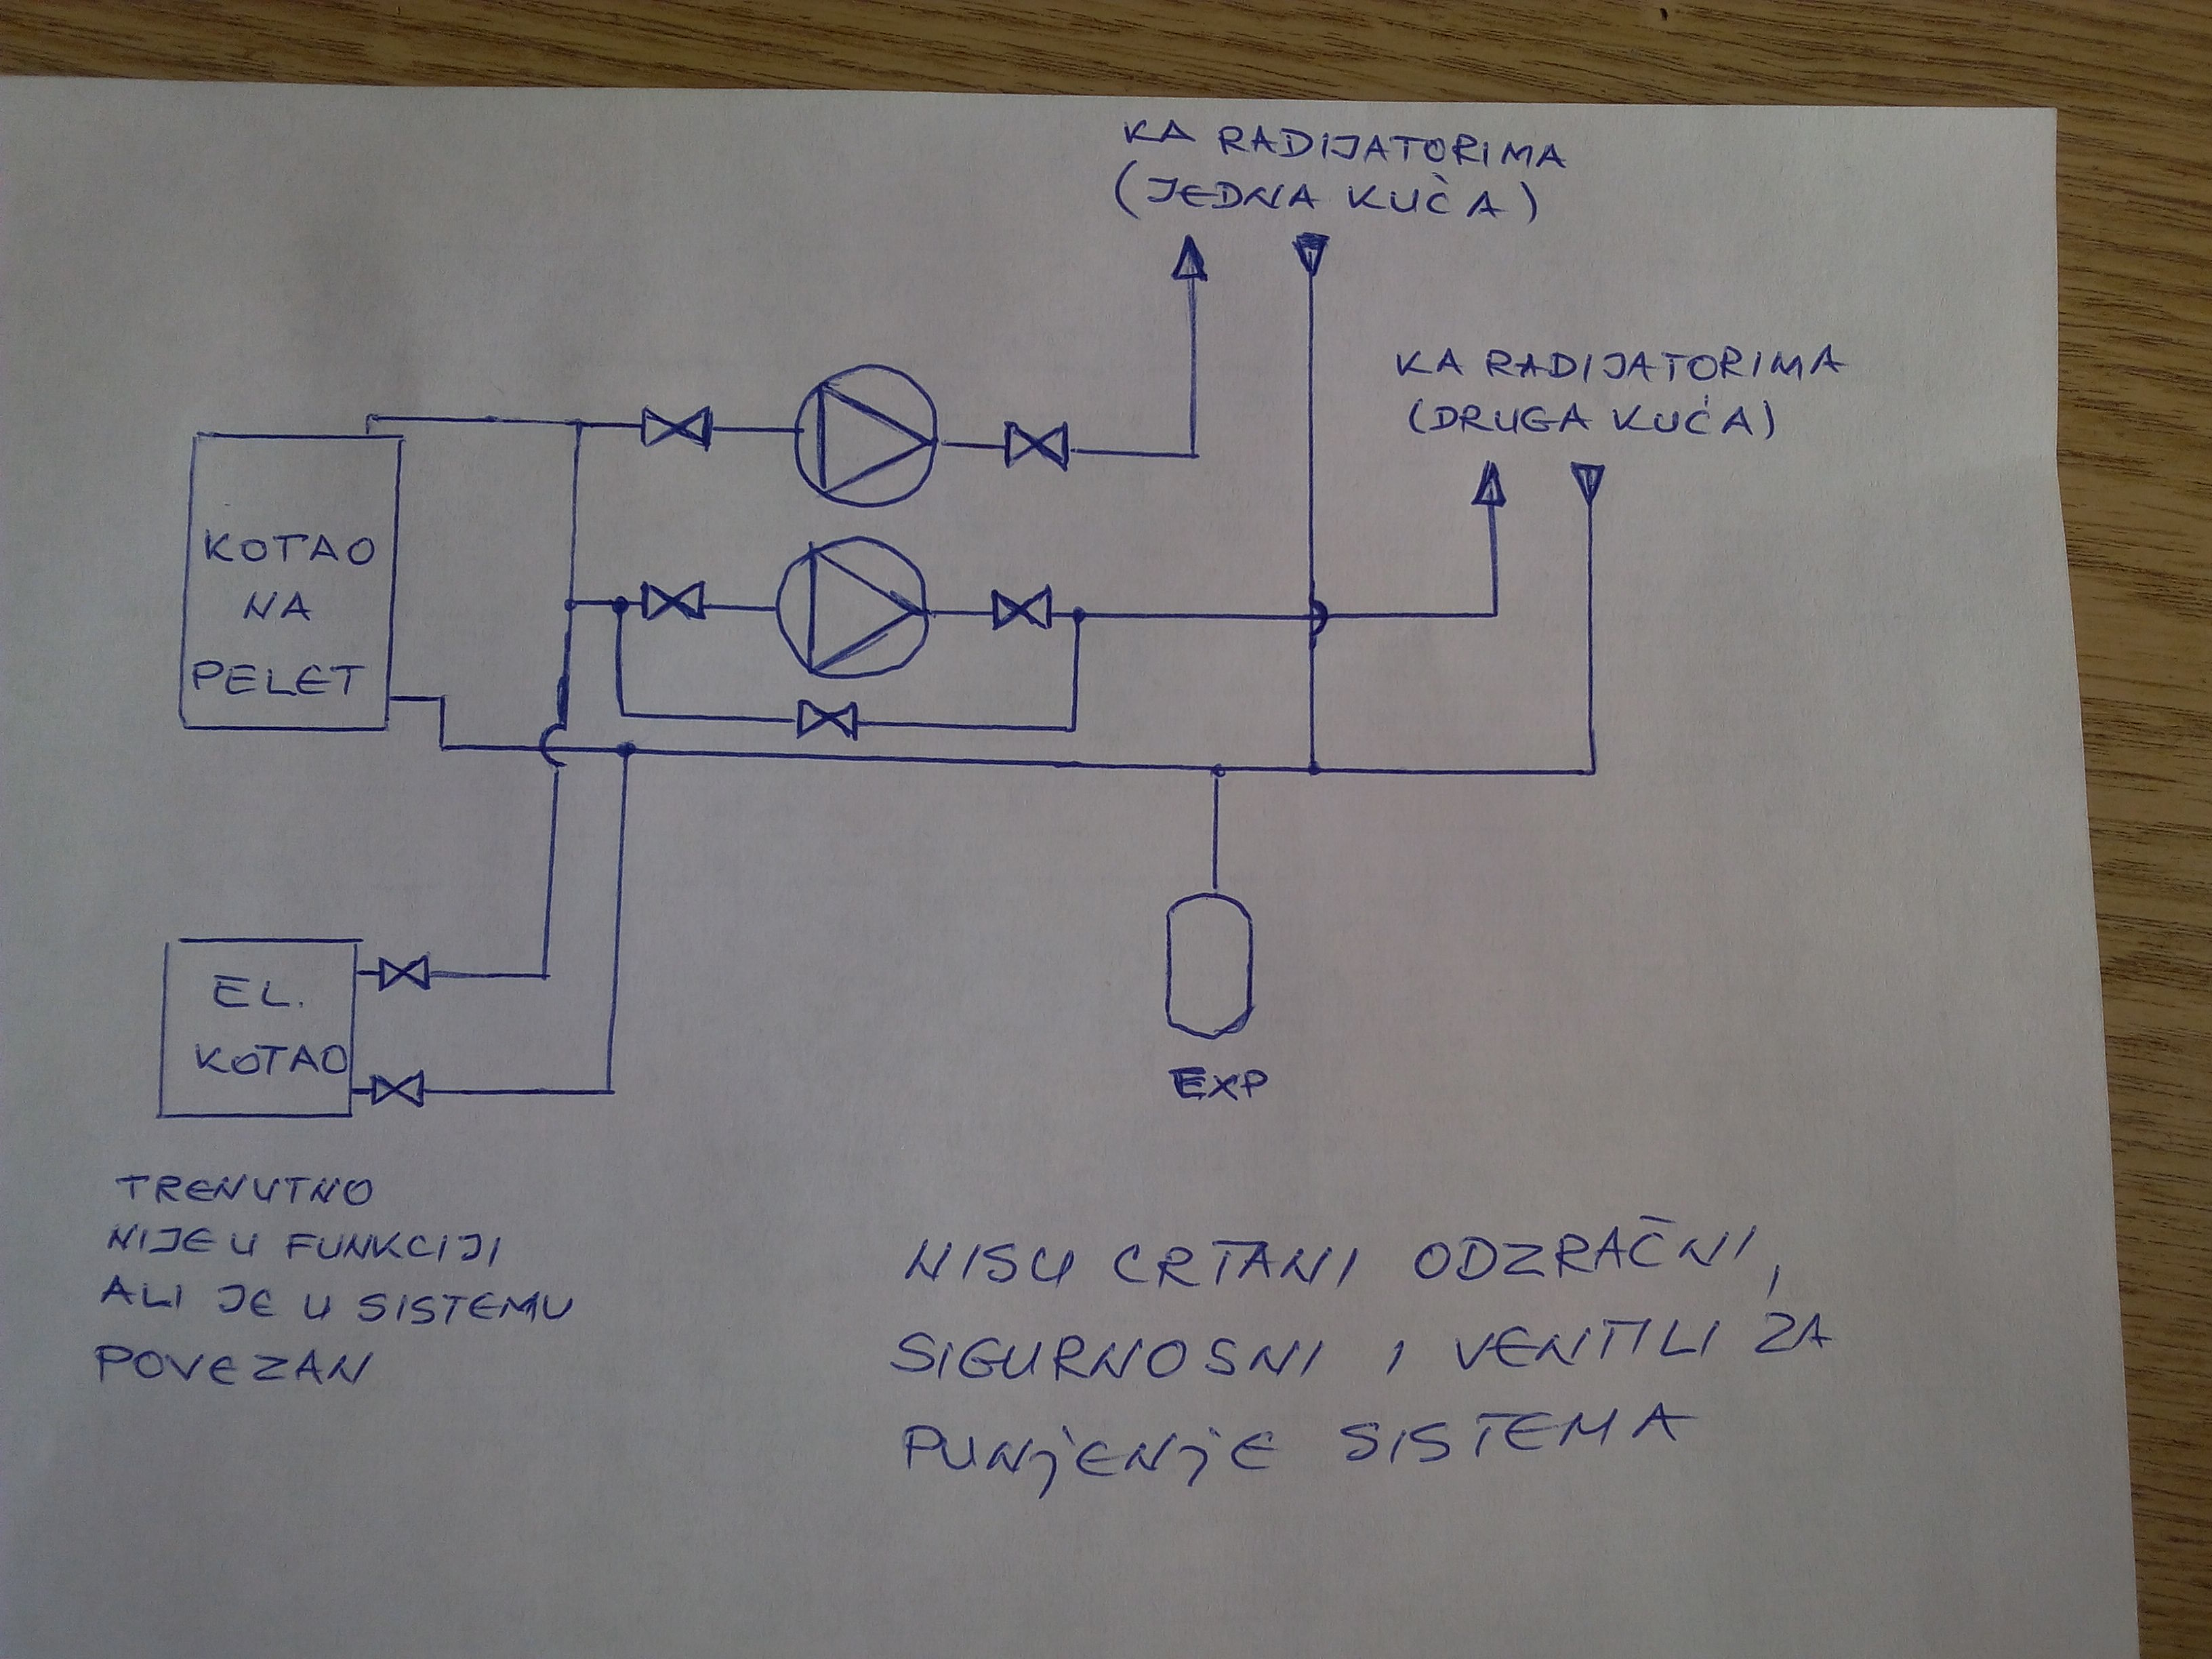 KA RADIJATORIMA
(JEDNA KUĆA)
KA RADIJATORIMA
(DRUGA KUĆA)
KOTAO
NA
PELET
EL.
KOTAO
EXP
TRENUTNO
NIJE U FUNKCIJI
ALI JE U SISTEMU
POVEZAN
NISU CRTANI ODZRAČNI,
SIGURNOSNI I VENTILI ZA
PUNJENJE SISTEMA